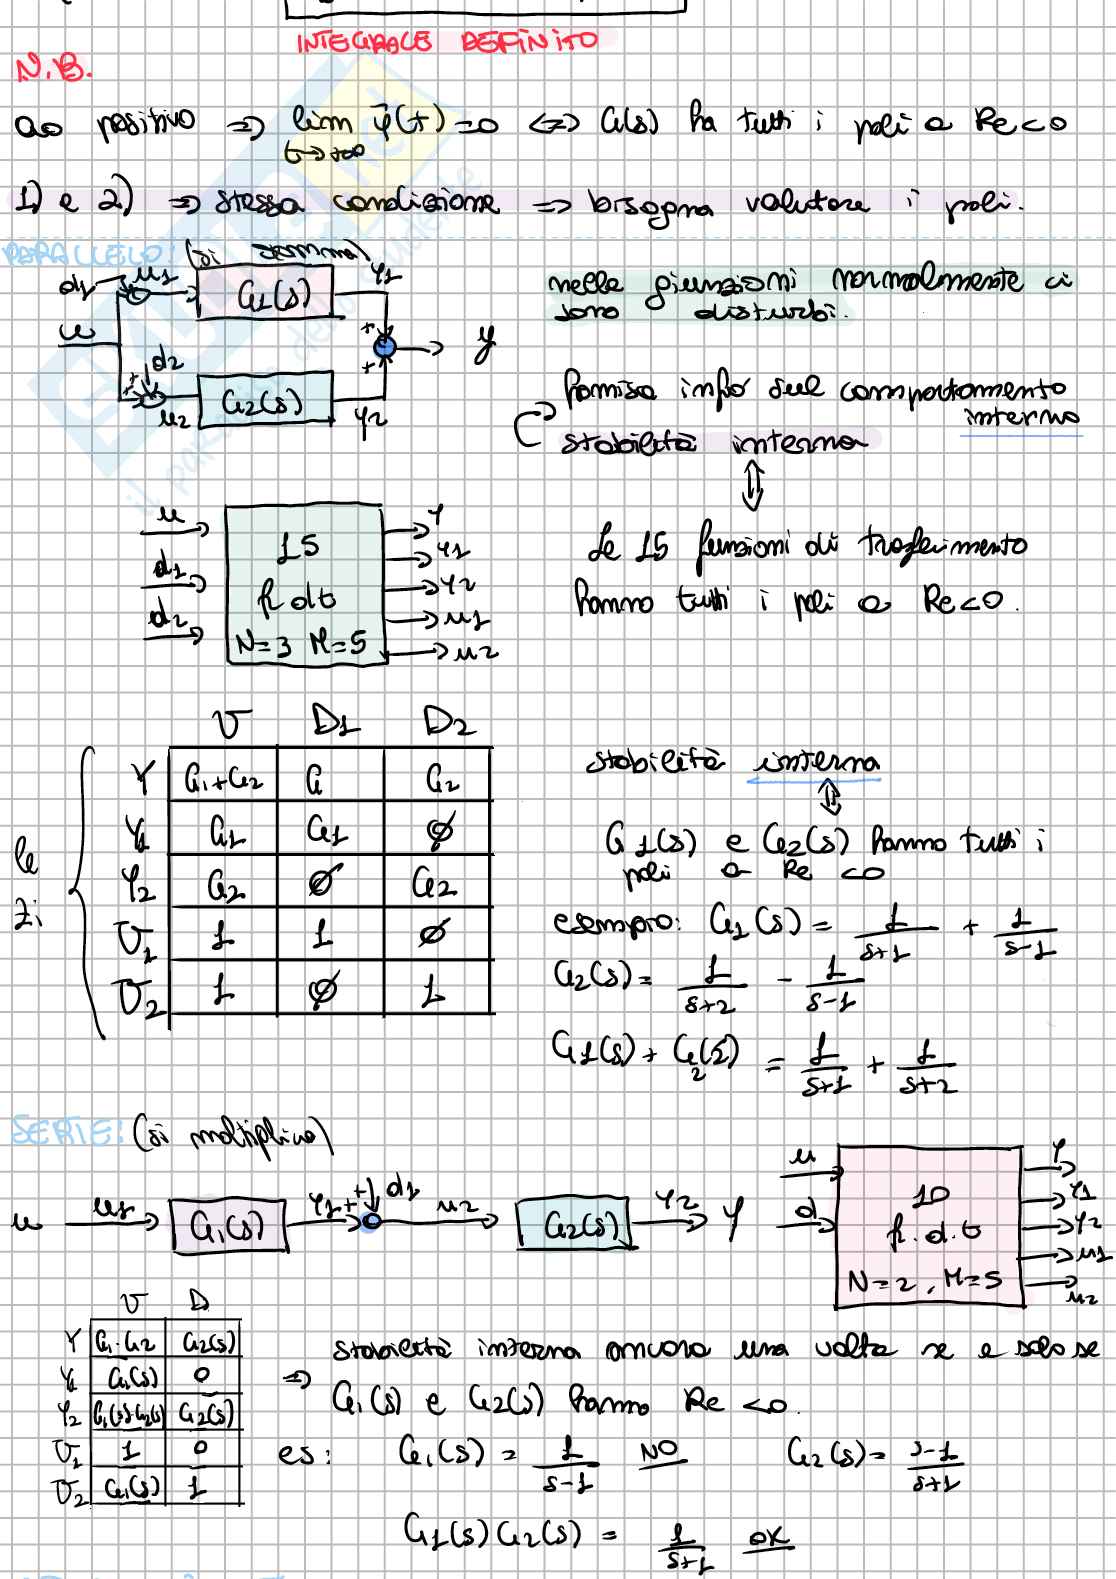 INTEGRALE DEFINITO
N.B.
ao positivo => lim φ(t) = 0 <=> G(s) ha tutti i poli a Re<0
t→+∞
1) e 2) => stessa condizione => bisogna valutare i poli.
PARALLELO: (si somma)
d1 u1 G1(s) y1
u + y
+ + d2 +
u2 G2(s) y2
nelle giunzioni normalmente ci
sono disturbi.
fornisce info sul comportamento
interno
stabilità interna
u 15 y
d1 f. dt y1
d2 N=3 M=5 y2
u1
u2
Le 15 funzioni di trasferimento
hanno tutti i poli a Re<0.
U D1 D2
Y G1+G2 G G2
Y1 G1 G1 ∅
Y2 G2 ∅ G2
U1 1 1 ∅
U2 1 ∅ 1
le
zi
stabilità interna
G1(s) e G2(s) hanno tutti i
poli a Re <0
esempio: G1(s) = 1/(s+1) + 1/(s-1)
G2(s) = 1/(s+2) - 1/(s-1)
G1(s) + G2(s) = 1/(s+1) + 1/(s+2)
SERIE: (si moltiplica)
u u1 G1(s) y1 + + d1 u2 G2(s) y2 y
u 10 y
d f.d.t y1
N=2, M=5 y2
u1
u2
U D
Y G1·G2 G2(s)
Y1 G1(s) 0
Y2 G1(s)·G2(s) G2(s)
U1 1 0
U2 G1(s) 1
=> stabilità interna ancora una volta se e solo se
G1(s) e G2(s) hanno Re <0.
es: G1(s) = 1/(s-1) NO G2(s) = (s-1)/(s+1)
G1(s)G2(s) = 1/(s+1) OK